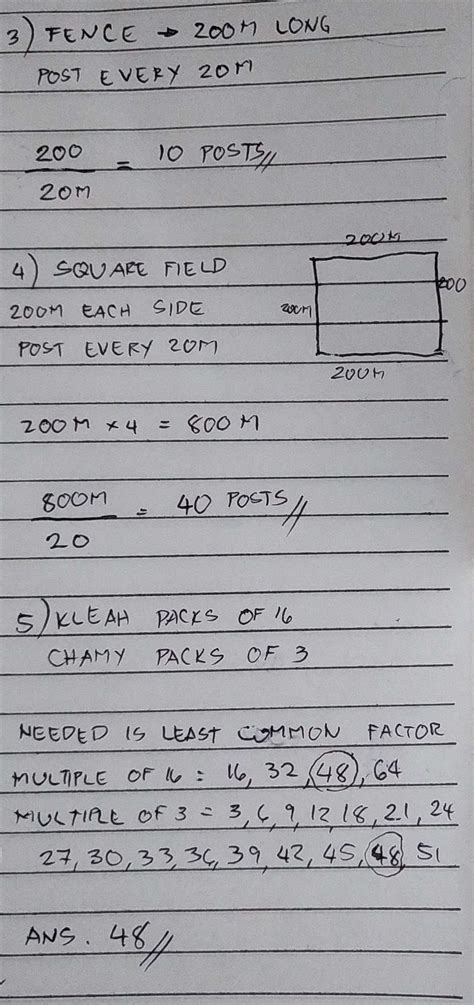 3) FENCE → 200M LONG
POST EVERY 20M
200
20M
= 10 POSTS//
200M
4) SQUARE FIELD
200
200M EACH SIDE
200M
POST EVERY 20M
200M
200M × 4 = 800M
800M
20
= 40 POSTS//
5) KLEAH PACKS OF 16
CHAMY PACKS OF 3
NEEDED IS LEAST COMMON FACTOR
MULTIPLE OF 16 = 16, 32, 48, 64
MULTIPLE OF 3 = 3, 6, 9, 12, 18, 21, 24
27, 30, 33, 36, 39, 42, 45, 48, 51
ANS. 48//